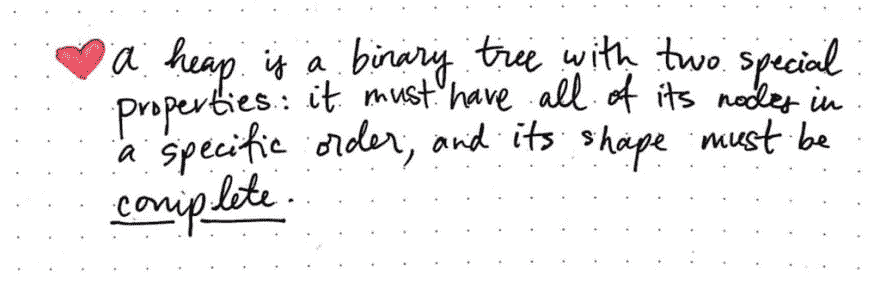 a heap is a binary tree with two special
properties: it must have all of its nodes in
a specific order, and its shape must be
complete.